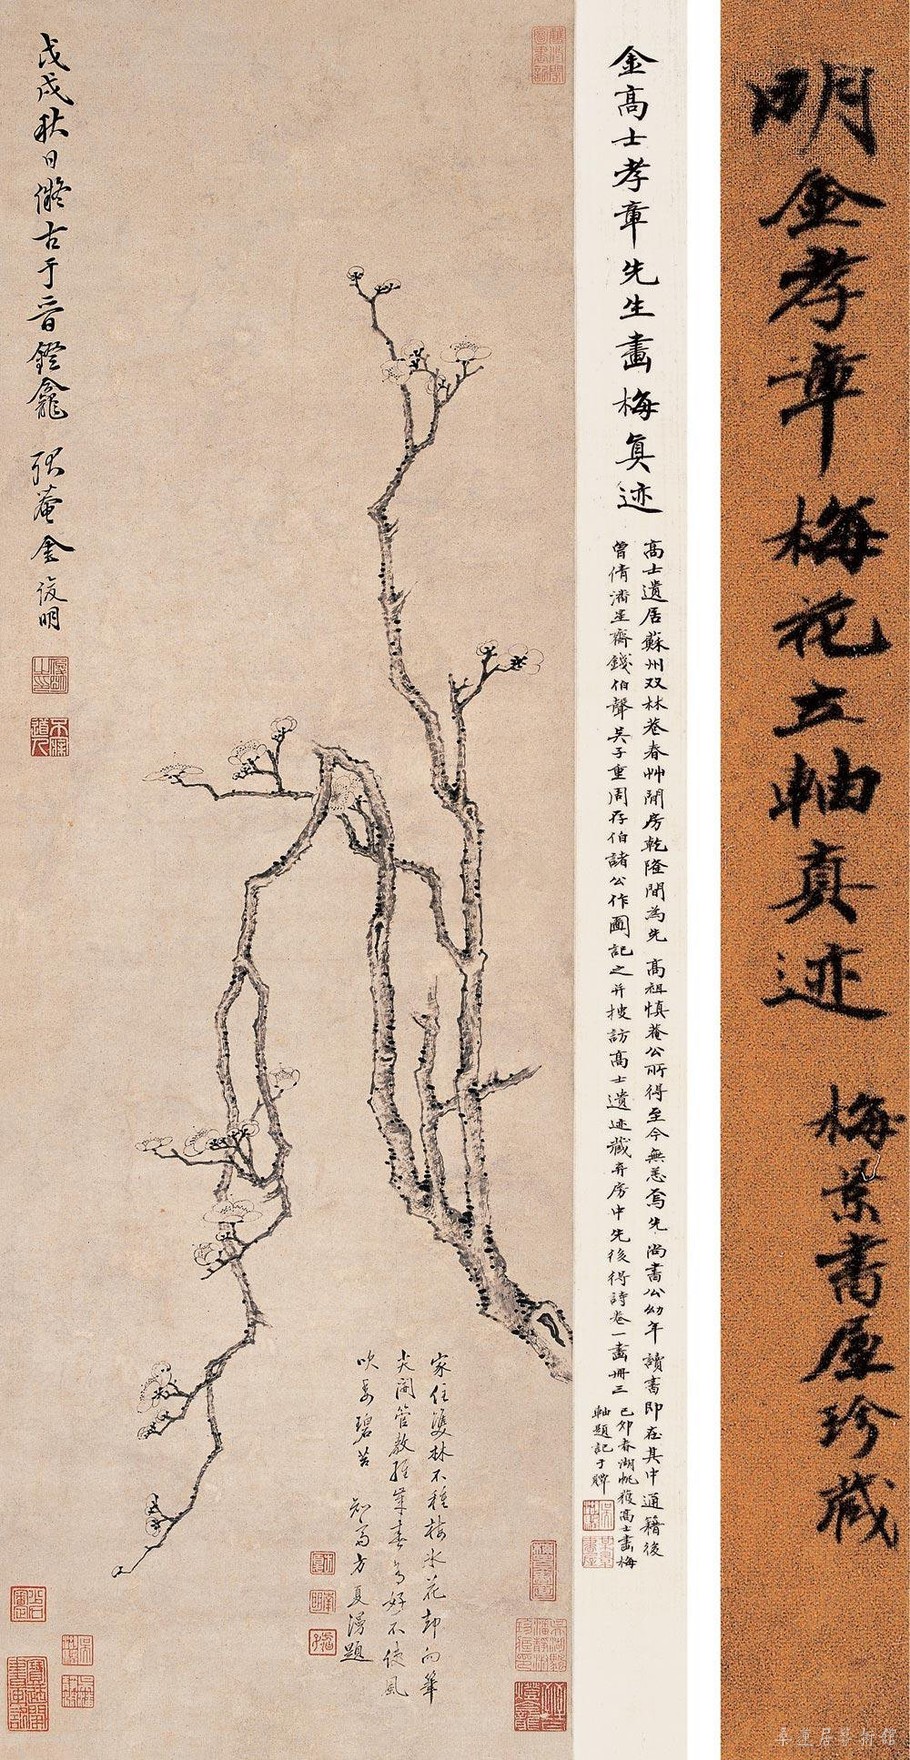 明金孝章梅花立軸真迹
梅景書屋珍藏
金高士孝章先生畫梅真迹
高士遺居蘇州双林巷春艸閒房乾隆間為先 高祖慎菴公所得至今無恙焉先 尚書公幼年讀書即在其中通籍後
曾倩濟星齋錢伯聲吳子重周存伯諸公作圖記之并搜訪高士遺迹藏弆房中先後得詩卷一畫冊三
己卯春湖帆獲高士畫梅
軸題記于髀
戊戌秋日儗古于音鐙龕 耿菴金俊明
家住雙林不種梅冰花却向筆
尖開管教經年春常好不使風
吹長碧苔 知昜方夏漫題